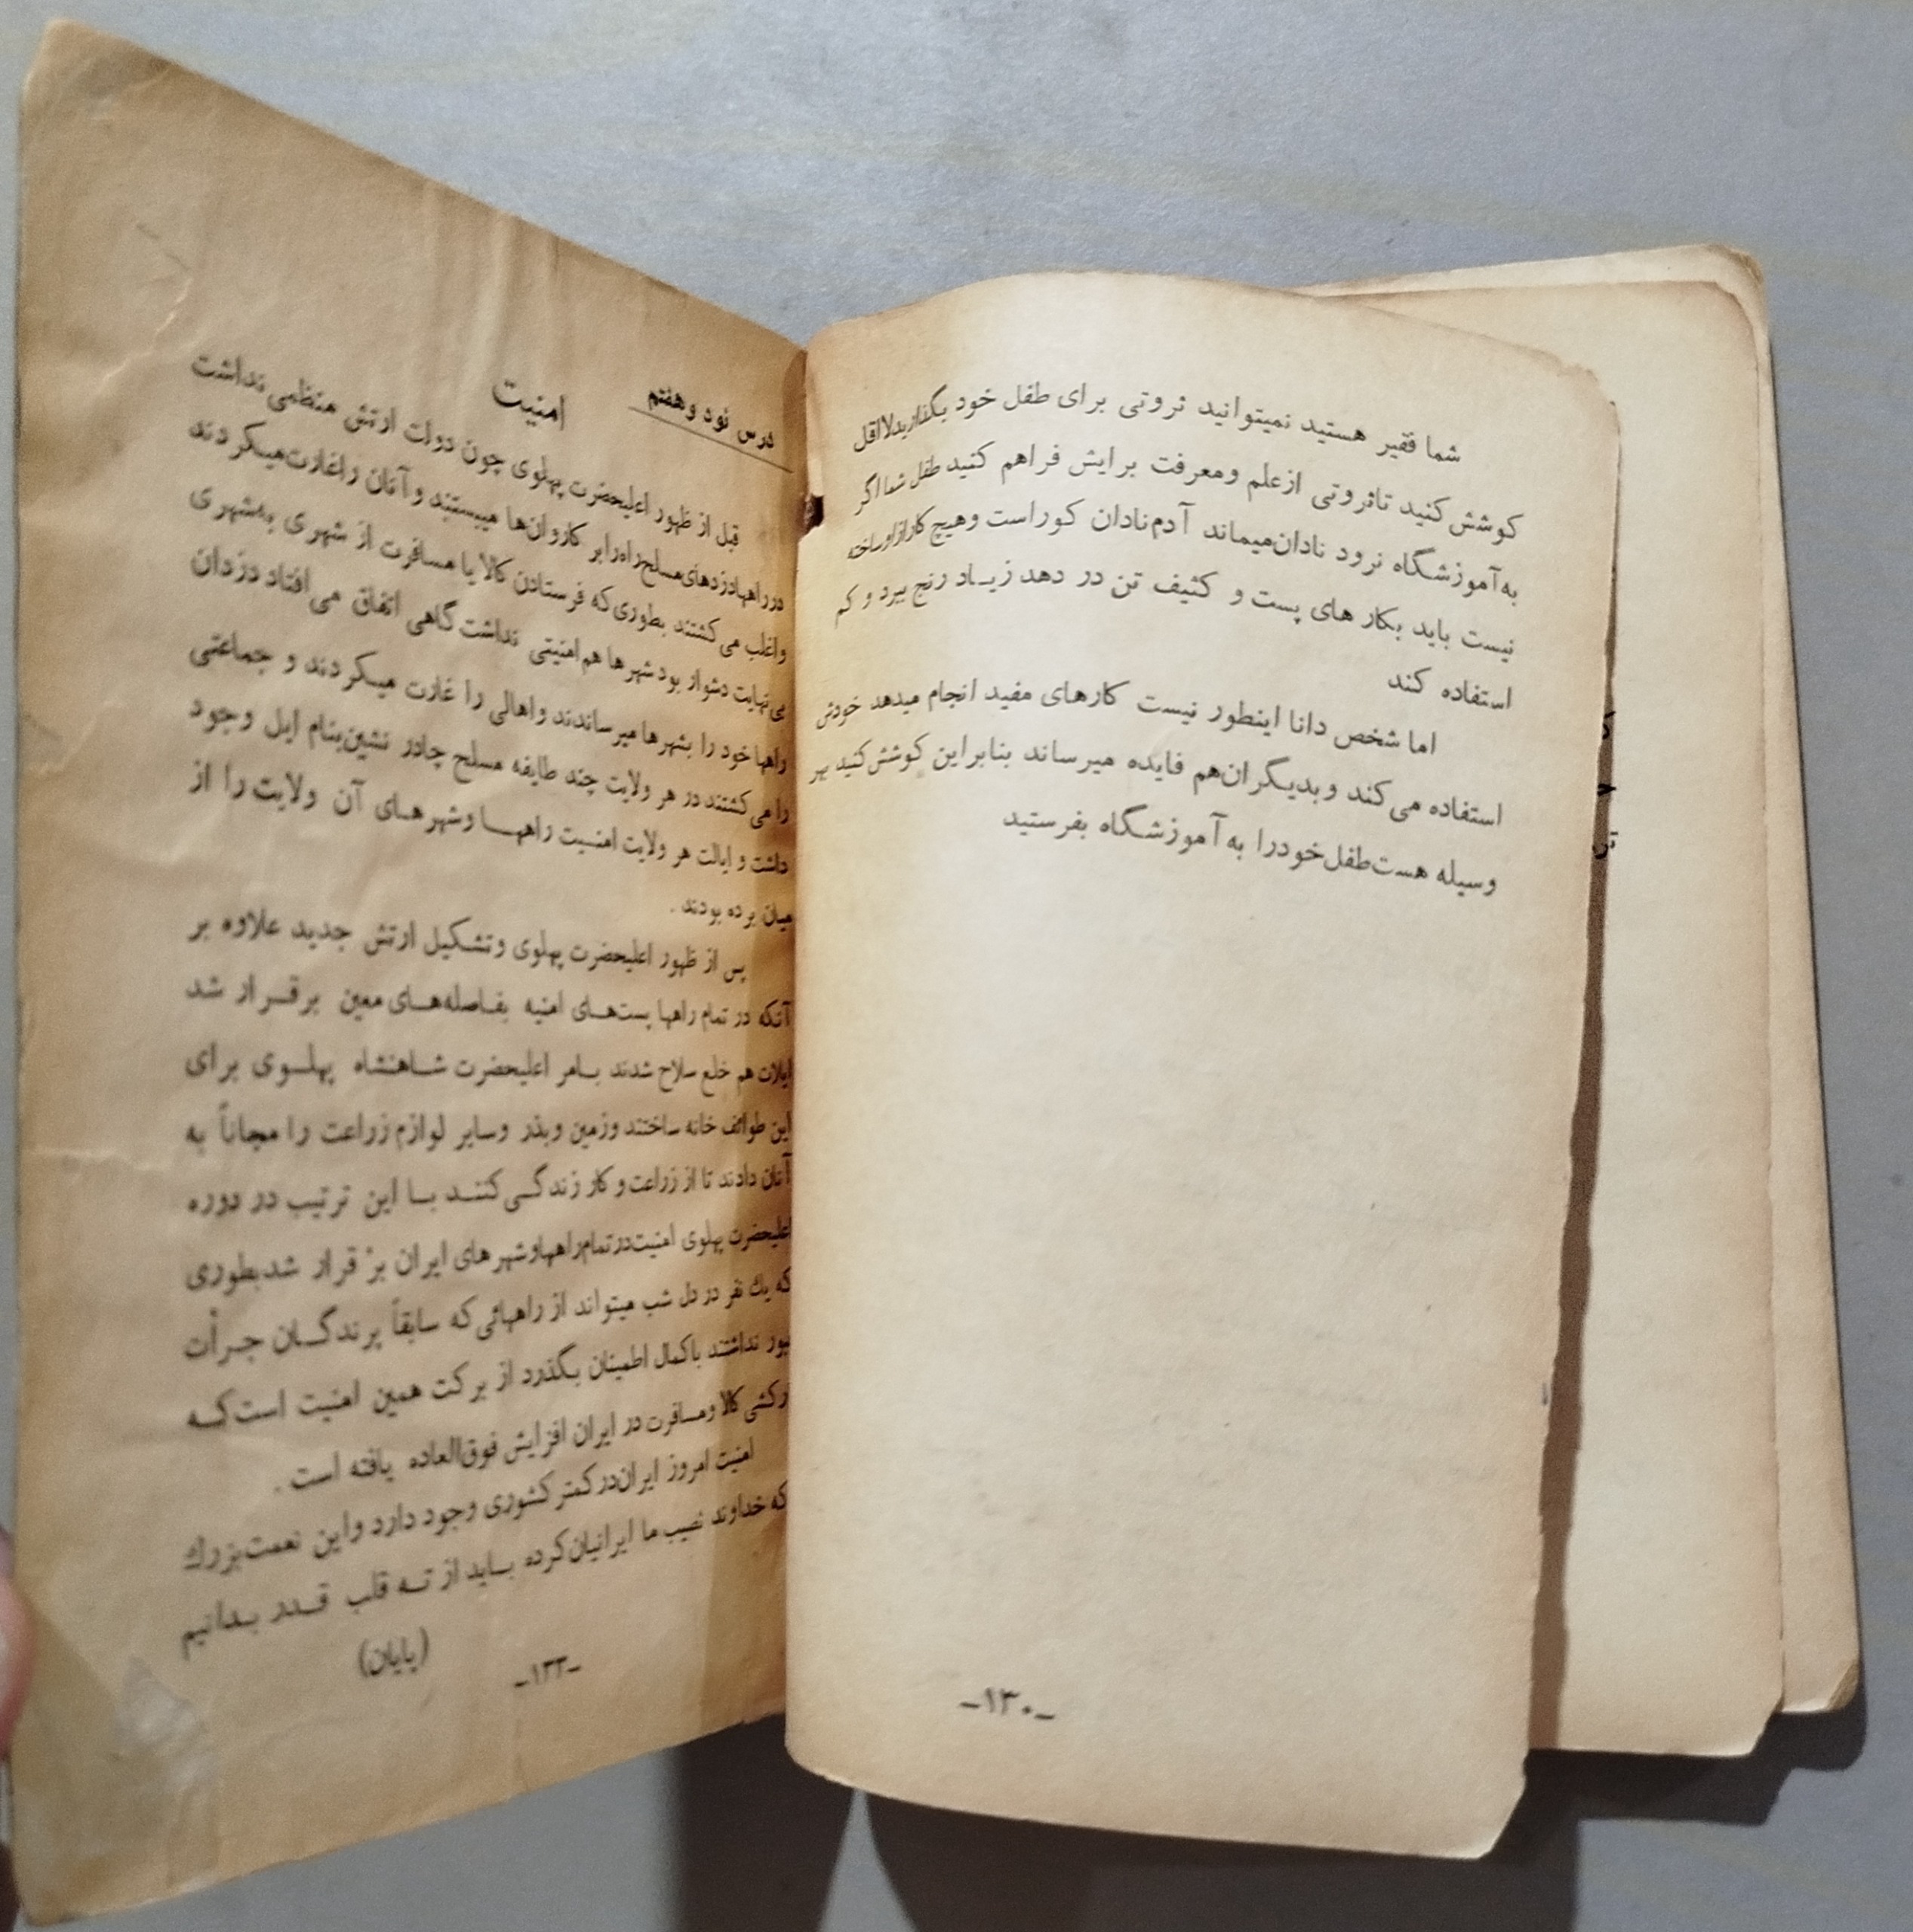 شما فقیر هستید نمیتوانید ثروتی برای طفل خود بگذارید لااقل
کوشش کنید تاثروتی ازعلم ومعرفت برایش فراهم کنید طفل شما اگر
به‌آموزشگاه نرود نادان‌میماند آدم‌نادان کوراست وهیچ کار ازاوساخته
نیست باید بکار های پست و کثیف تن در دهد زیاد رنج ببرد و کم
استفاده کند
اما شخص دانا اینطور نیست کارهای مفید انجام میدهد خودش
استفاده می‌کند وبدیگران‌هم فایده میرساند بنابراین کوشش کنید بهر
وسیله هست‌طفل‌خودرا به‌آموزشگاه بفرستید
-۱۳۰-
درس نود وهفتم
امنیت
قبل از ظهور اعلیحضرت پهلوی چون دولت ارتش منظمی نداشت
درراهها دزدهای‌مسلح‌راه‌رابر کاروان‌ها میبستند وآنان راغارت‌میکردند
واغلب می‌کشتند بطوری‌که فرستادن کالا یا مسافرت از شهری به‌شهری
بی‌نهایت دشوار بود شهرها هم‌امنیتی نداشت گاهی اتفاق می‌افتاد دزدان
راهها خود را بشهرها میرساندند واهالی را غارت میکردند و جماعتی
را می‌کشتند در هر ولایت چند طایفه مسلح چادر نشین‌بنام ایل وجود
داشت و ایالت هر ولایت امنیت راهها وشهرهای آن ولایت را از
میان برده بودند .
پس از ظهور اعلیحضرت پهلوی وتشکیل ارتش جدید علاوه بر
آنکه در تمام راهها پست‌های امنیه بفاصله‌های معین برقرار شد
ایلات هم خلع سلاح شدند بامر اعلیحضرت شاهنشاه پهلوی برای
این طوائف خانه ساختند وزمین وبذر وسایر لوازم زراعت را مجاناً به
آنان دادند تا از زراعت و کار زندگی کنند با این ترتیب در دوره
اعلیحضرت پهلوی امنیت‌درتمام‌راههاوشهرهای ایران بر قرار شدبطوری
که یك نفر در دل شب میتواند از راههائی که سابقاً پرندگان جرأت
نداشتند باکمال اطمینان بگذرد از برکت همین امنیت است‌که
کالا ومسافرت در ایران افزایش فوق‌العاده یافته است .
امنیت امروز ایران‌درکمتر کشوری وجود دارد واین نعمت‌بزرك
که خداوند نصیب ما ایرانیان‌کرده باید از ته قلب قدر بدانیم
(پایان)
-۱۳۳-